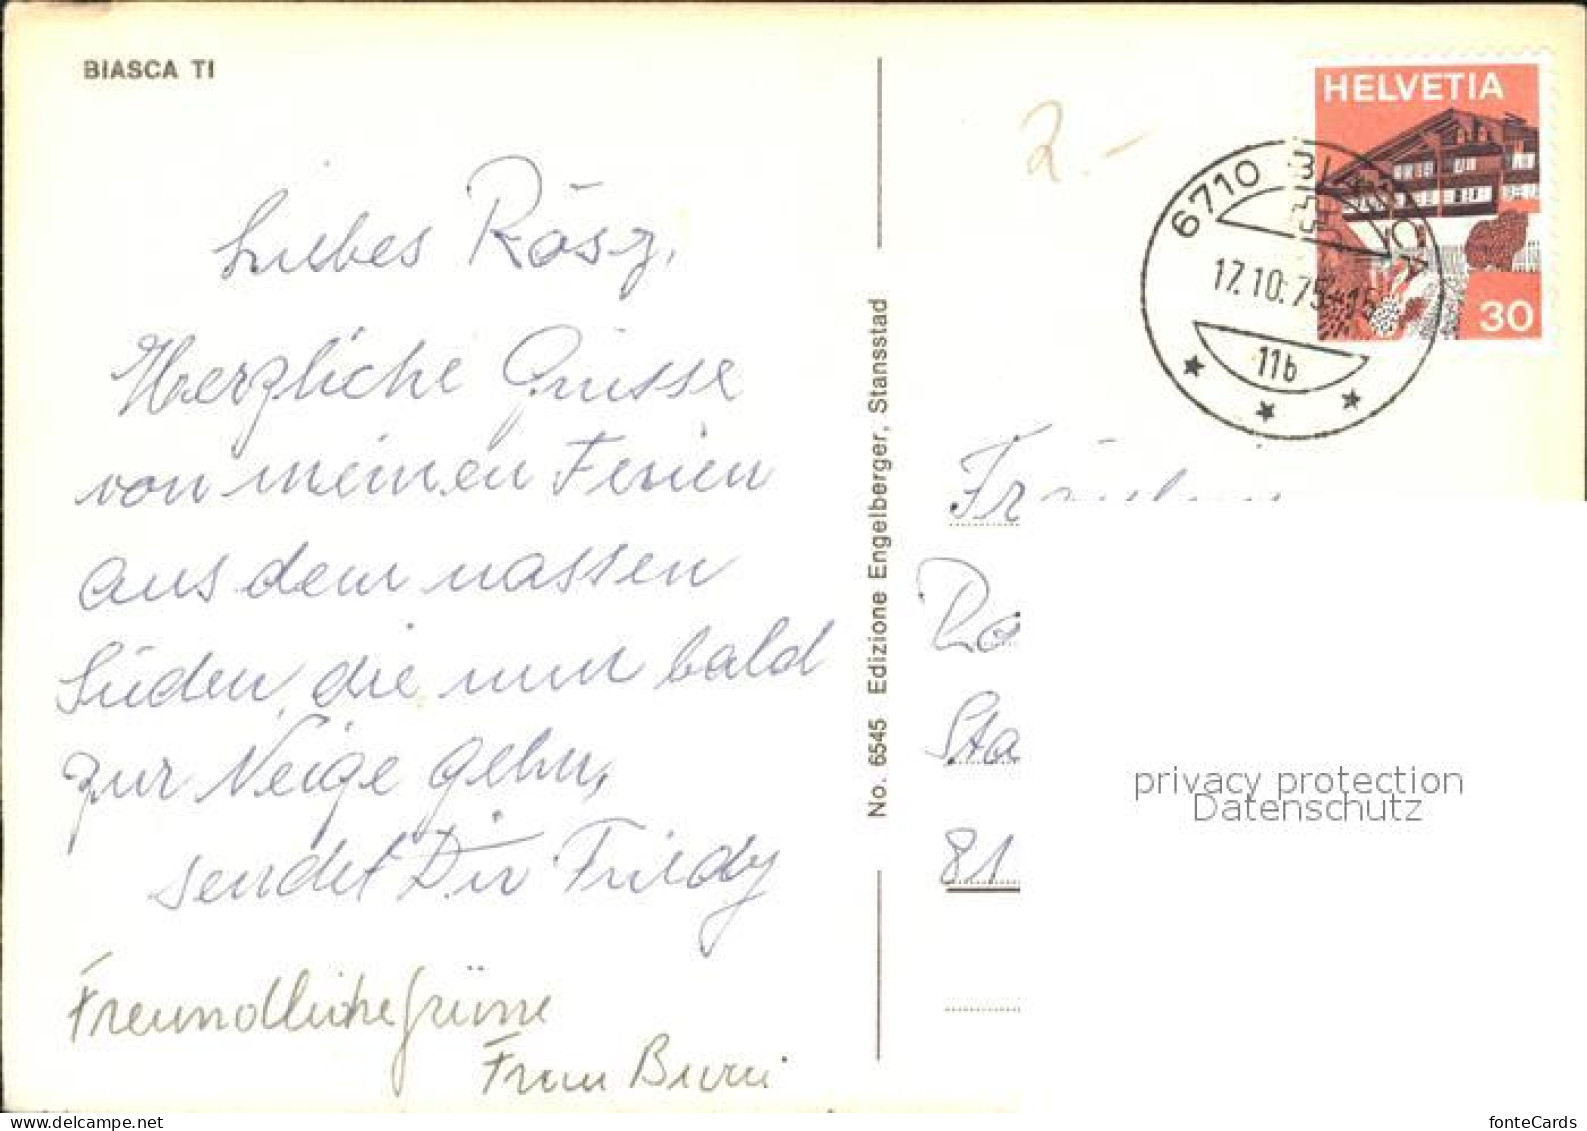 BIASCA TI
Liebes Rösy,
Herzliche Grüsse
von meinen Ferien
aus dem nassen
Süden, die nun bald
zur Neige gehn,
sendet Dir Friedy
Freundliche Grüsse
Frau Burri
No. 6545 Edizione Engelberger, Stansstad
2.-
HELVETIA
30
6710 BIASCA
17.10.75-15
11b
Fräulein
Rö
Sta
81
privacy protection
Datenschutz
fonteCards